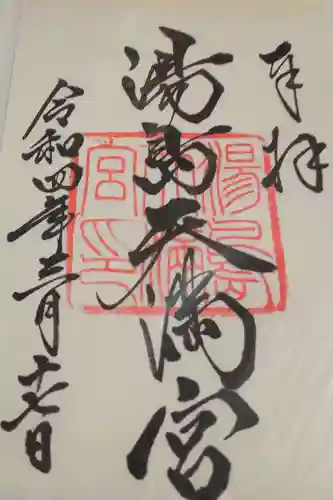 奉拝
湯島天満宮
令和四年三月十七日
湯島
天満
宮印